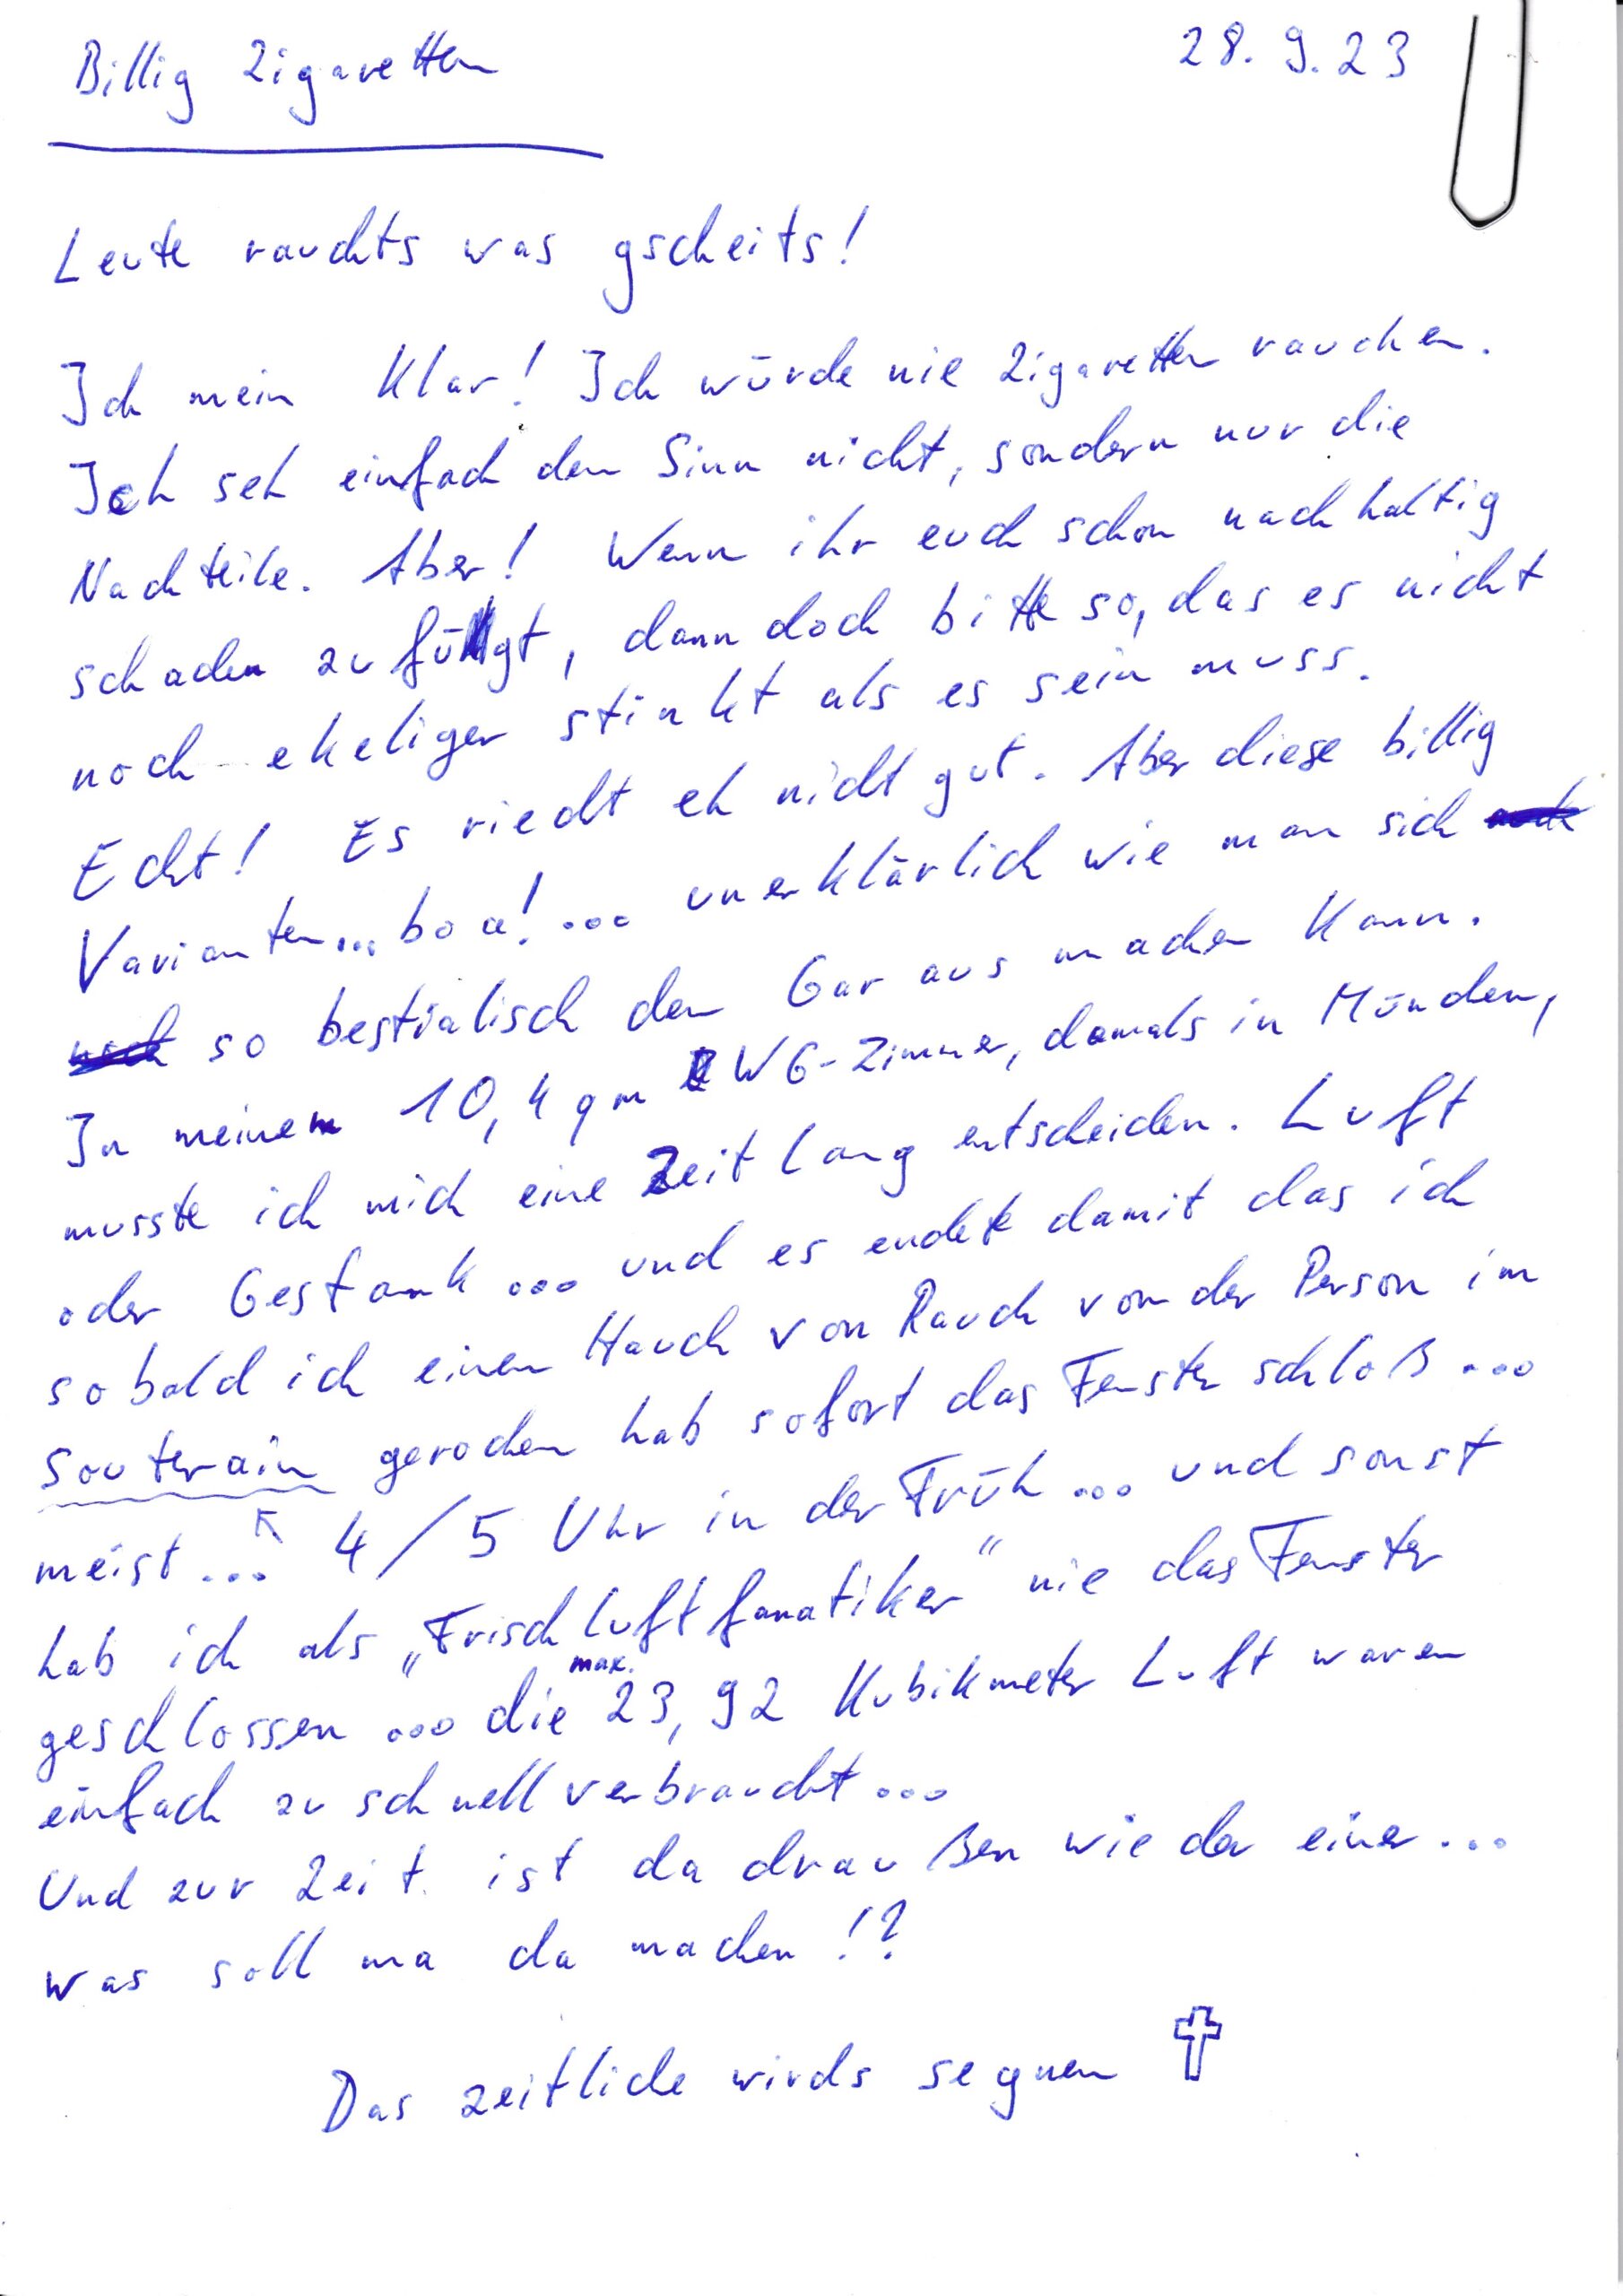 Billig Zigaretten 28.9.23
Leute rauchts was gscheits!
Ich mein Klar! Ich würde nie Zigaretten rauchen.
Ich seh einfach den Sinn nicht, sondern nur die
Nachteile. Aber! Wenn ihr euch schon nachhaltig
schaden zu fügt, dann doch bitte so, das es nicht
noch ekeliger stinkt als es sein muss.
Echt! Es riecht eh nicht gut. Aber diese billig
Varianten... boa! ... unerklärlich wie man sich
so bestialisch den Gar aus machen kann.
In meinem 10,4 qm WG-Zimmer, damals in München,
musste ich mich eine Zeit lang entscheiden. Luft
oder Gestank ... und es endete damit das ich
sobald ich einen Hauch von Rauch von der Person im
Souterain gerochen hab sofort das Fenster schloß ...
meist ... 4/5 Uhr in der Früh ... und sonst
hab ich als „Frischluftfanatiker" nie das Fenster
geschlossen ... die max. 23,92 Kubikmeter Luft waren
einfach zu schnell verbraucht ...
Und zur Zeit ist da draußen wieder einer ...
was soll ma da machen!?
Das zeitliche wirds segnen ✝